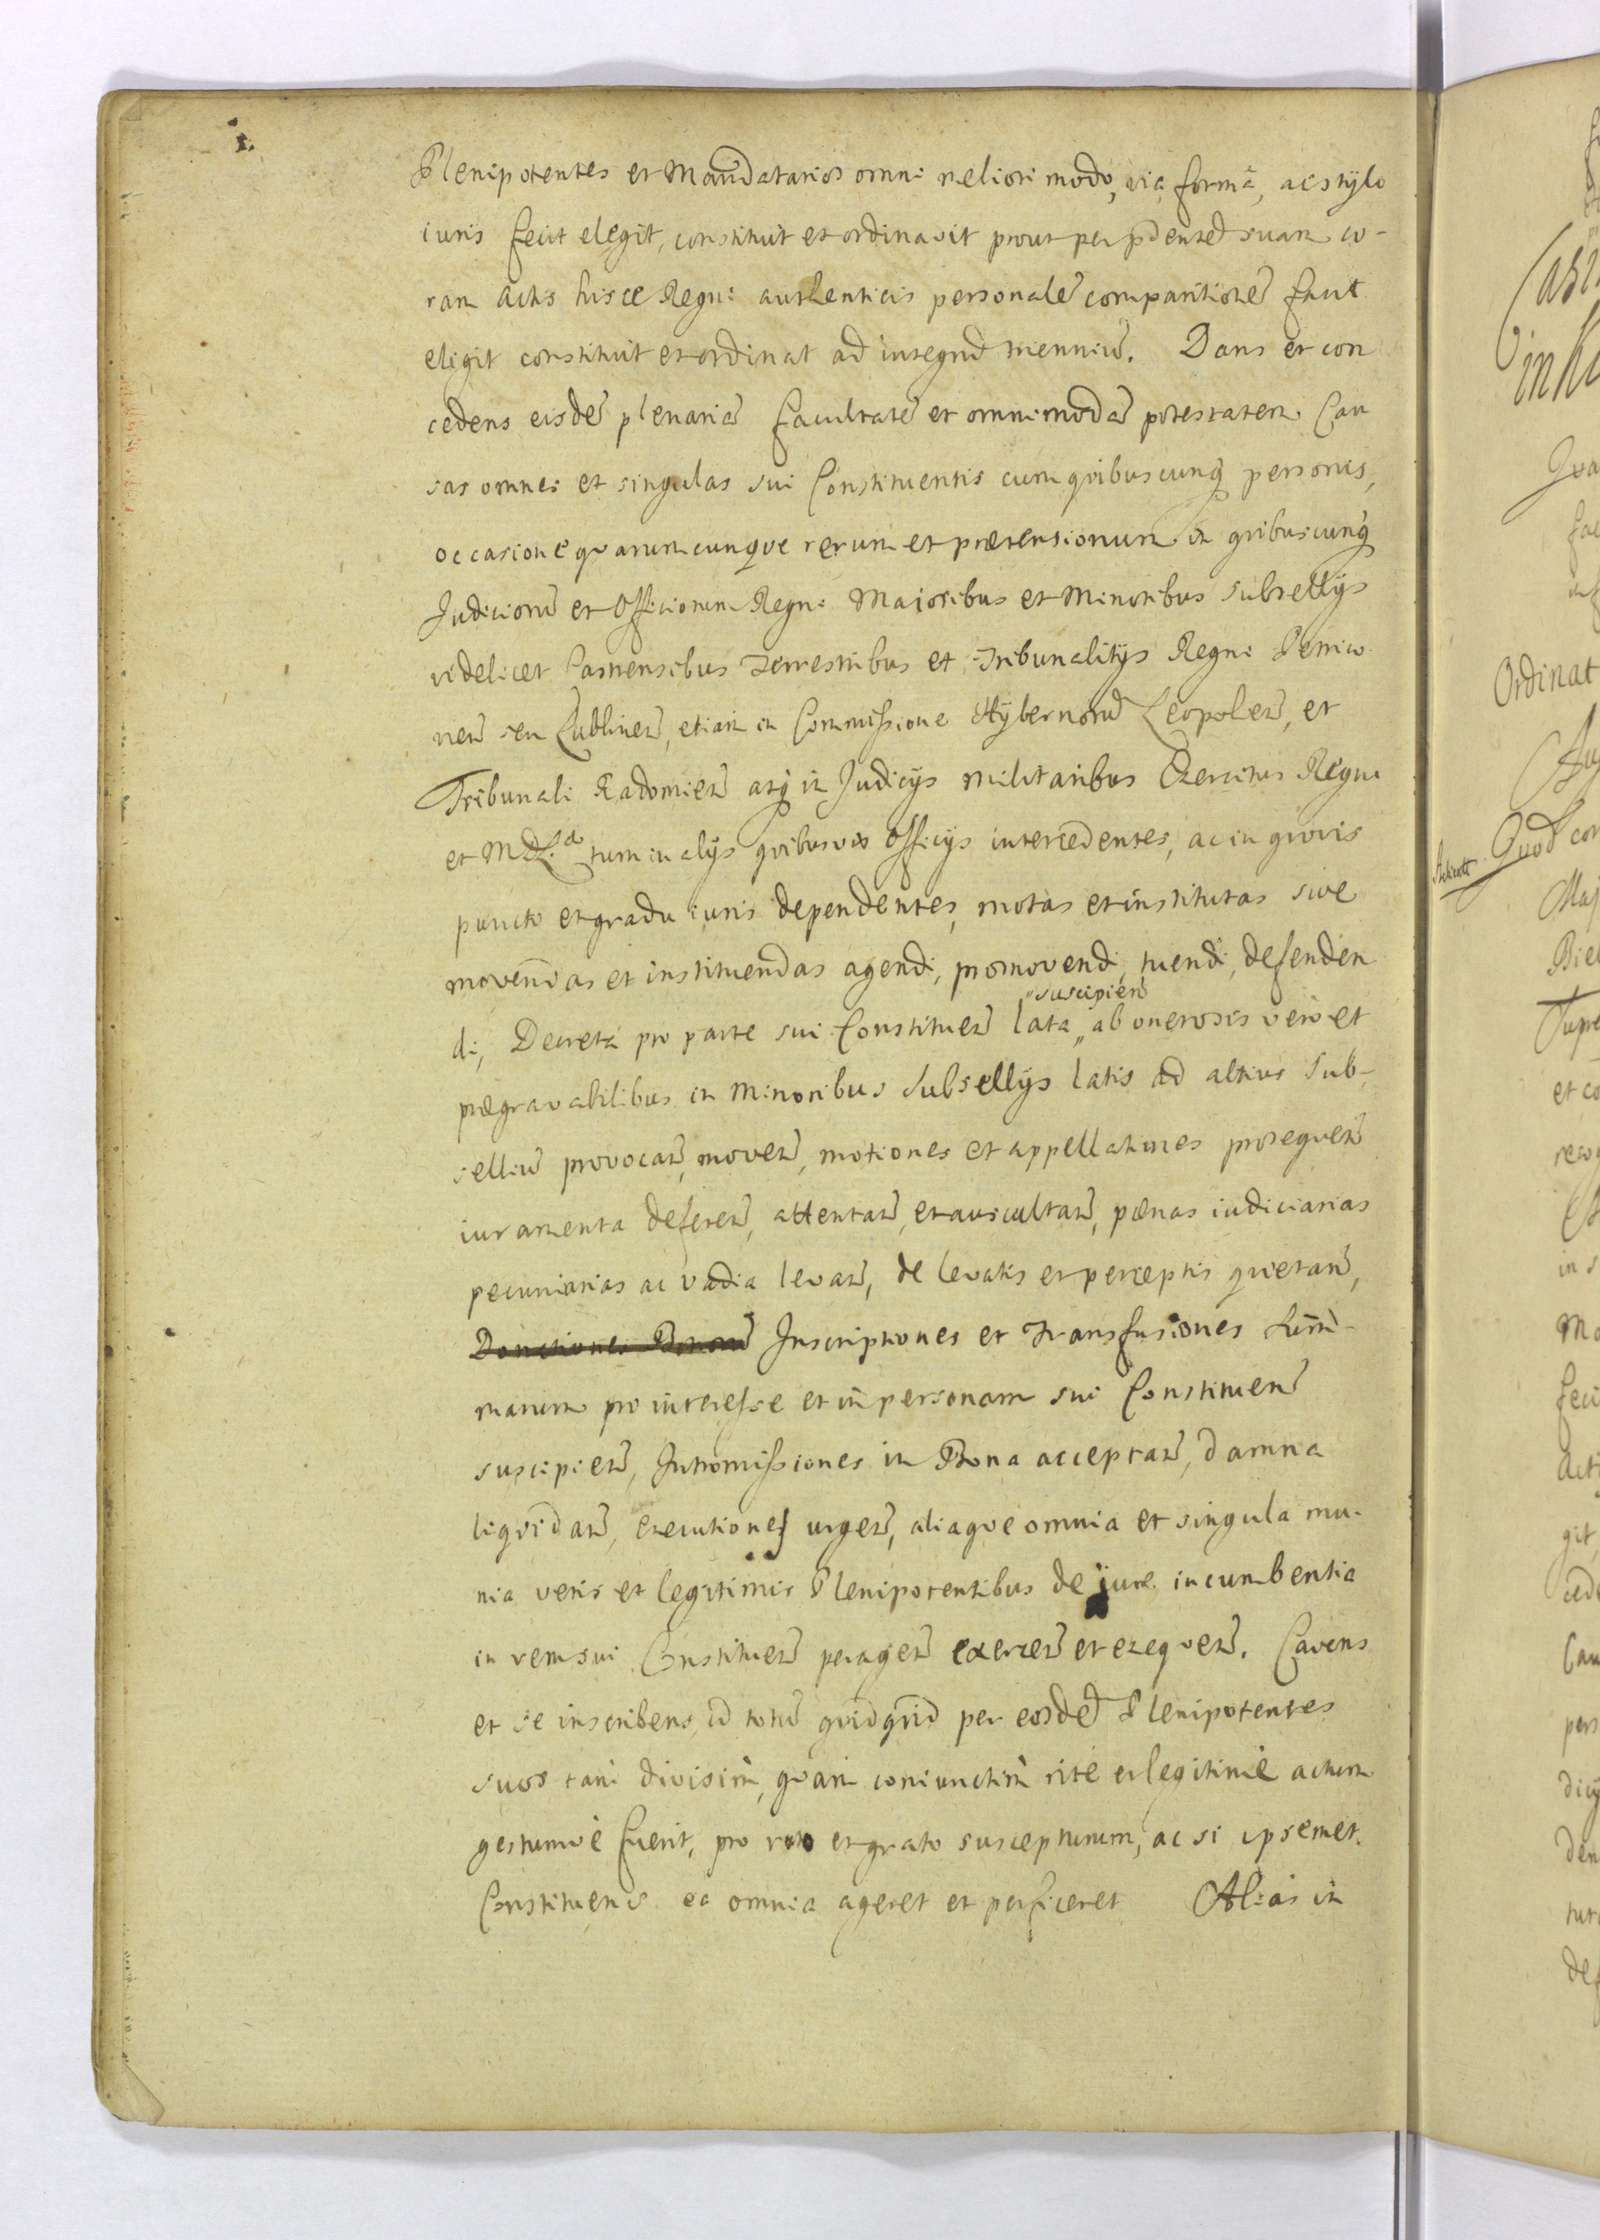 1.
Plenipotentes et Mandatarios omni meliori modo, via, formã, ac stylo
iuris fecit elegit, constituit et ordinavit prout per p̃dentẽ suam co-
ram Actis hisce Regni authenticis personalẽ comparitionẽ facit
eligit constituit et ordinat ad integrũ trienniũ. Dans et con
cedens eisdẽ plenariã facultatẽ et omnimodã potestatem Cau
sas omnes et singulas sui Constituentis cum quibuscunq̃ personis,
occasione quarumcunque rerum et prætensionum in quibuscunq̃
Judiciorũ et Officiorum Regni Maioribus et Minoribus Subsellijs
videlicet Castrensibus Terrestribus et Tribunalitijs Regni Petrico
vieñ seu Lublineñ, etiam in Commissione Hybernorũ Leopolieñ, et
Tribunali Radomieñ atq̃ in Judicijs Militaribus Exercitus Regni
et M.D.L. tum in alijs quibusvis Officijs intercedentes, ac in quovis
puncto et gradu iuris dependentes, motas et institutas sive
movendas et instituendas agendi, promovendi, tuendi, defenden
di, Decreta pro parte sui Constitueñ lata „ ab onerosis verò et
„suscipieñ
prægravabilibus in Minoribus Subsellijs latis ad altius Sub-
selliũ provocañ, moveñ, motiones et appellationes prosequeñ
iuramenta defereñ, attentañ, et auscultañ, pœnas iudiciarias
pecuniarias ac vadia levañ, de levatis et perceptis quietañ,
Donationes Bonorũ Inscriptiones et Transfusiones Sum̃-
marum pro interesse et in personam sui Constitueñ
suscipieñ, Intromissiones in Bona acceptañ, damna
liquidañ, executiones urgeñ, aliaque omnia et singula mu-
nia veris et legitimis Plenipotentibus de iure incumbentia
in rem sui Constitueñ perageñ exerceñ et exequeñ. Cavens
et se inscribens, id totũ quidquid per eosdẽ Plenipotentes
suos tam divisim, quàm coniunctim rite et legitimè actum
gestumvè fuerit, pro rato et grato suscepturum, ac si ipsemet
Constituens ea omnia ageret et perficeret Alias in